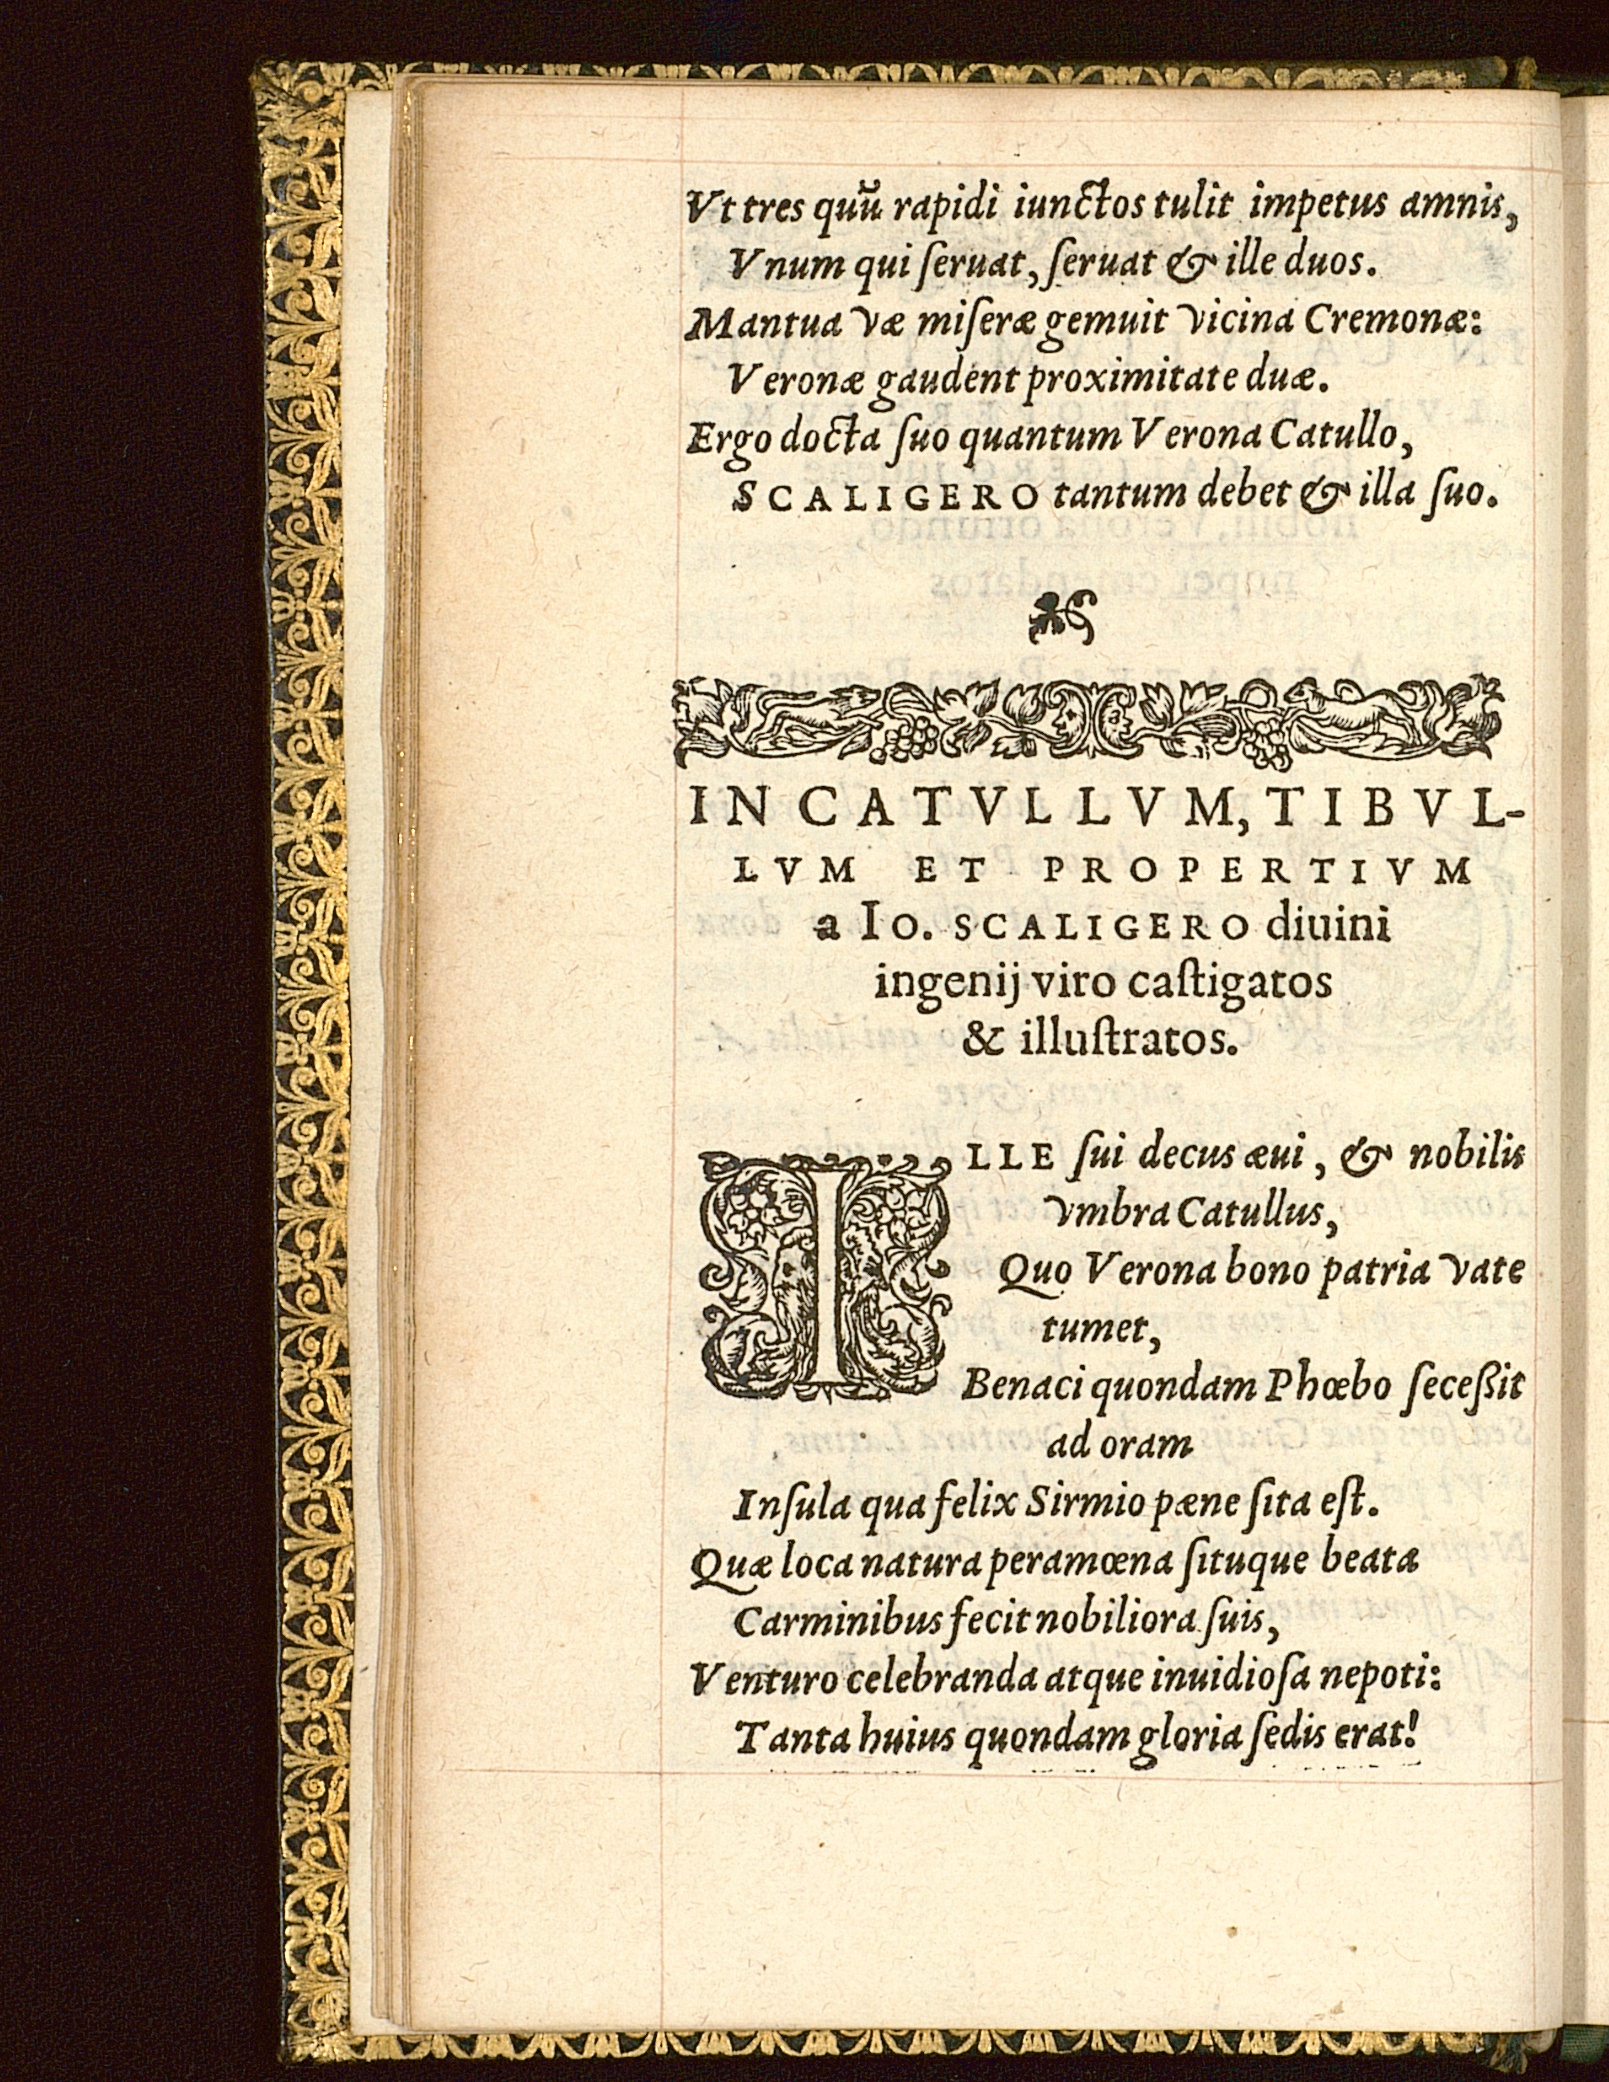 Vt tres quū rapidi iunctos tulit impetus amnis,
Vnum qui ſeruat, ſeruat & ille duos.
Mantua væ miſeræ gemuit vicina Cremonæ:
Veronæ gaudent proximitate duæ.
Ergo docta ſuo quantum Verona Catullo,
SCALIGERO tantum debet & illa ſuo.
IN CATVLLVM, TIBVL-
LVM ET PROPERTIVM
a Io. SCALIGERO diuini
ingenij viro caſtigatos
& illuſtratos.
ILLE ſui decus æui, & nobilis
vmbra Catullus,
Quo Verona bono patria vate
tumet,
Benaci quondam Phœbo ſeceßit
ad oram
Inſula qua felix Sirmio pæne ſita eſt.
Quæ loca natura peramœna ſituque beata
Carminibus fecit nobiliora ſuis,
Venturo celebranda atque inuidioſa nepoti:
Tanta huius quondam gloria ſedis erat!